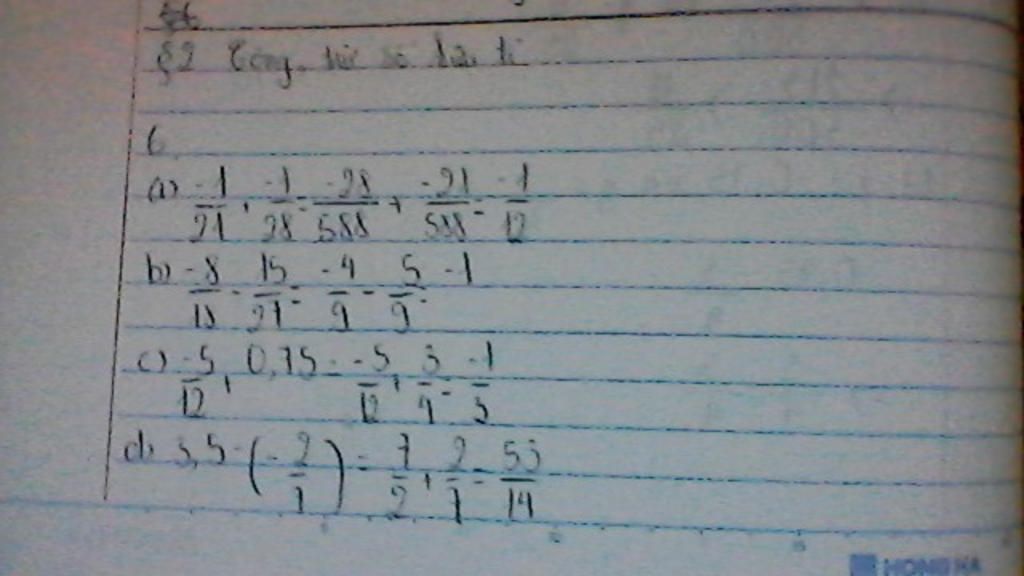 §2 Cộng, trừ số hữu tỉ
6
a) -1/21 + -1/28 = -28/588 + -21/588 = -1/12
b) -8/18 - 15/27 = -4/9 - 5/9 = -1
c) -5/12 + 0,75 = -5/12 + 3/4 = 1/3
d) 3,5 - (-2/7) = 7/2 + 2/7 = 53/14
HONG HA